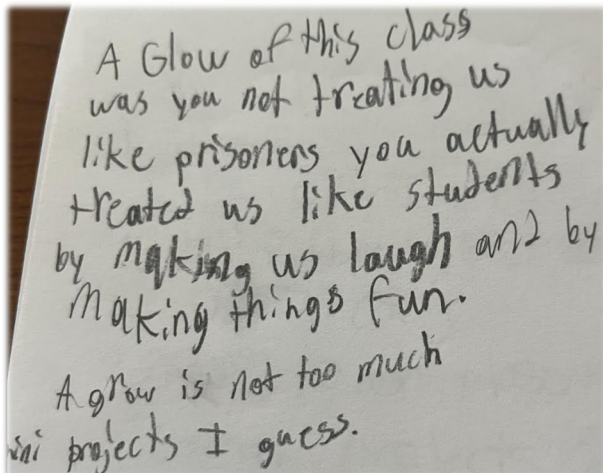 A Glow of this class
was you not treating us
like prisoners you actually
treated us like students
by making us laugh and by
making things fun.
A grow is not too much
projects I guess.